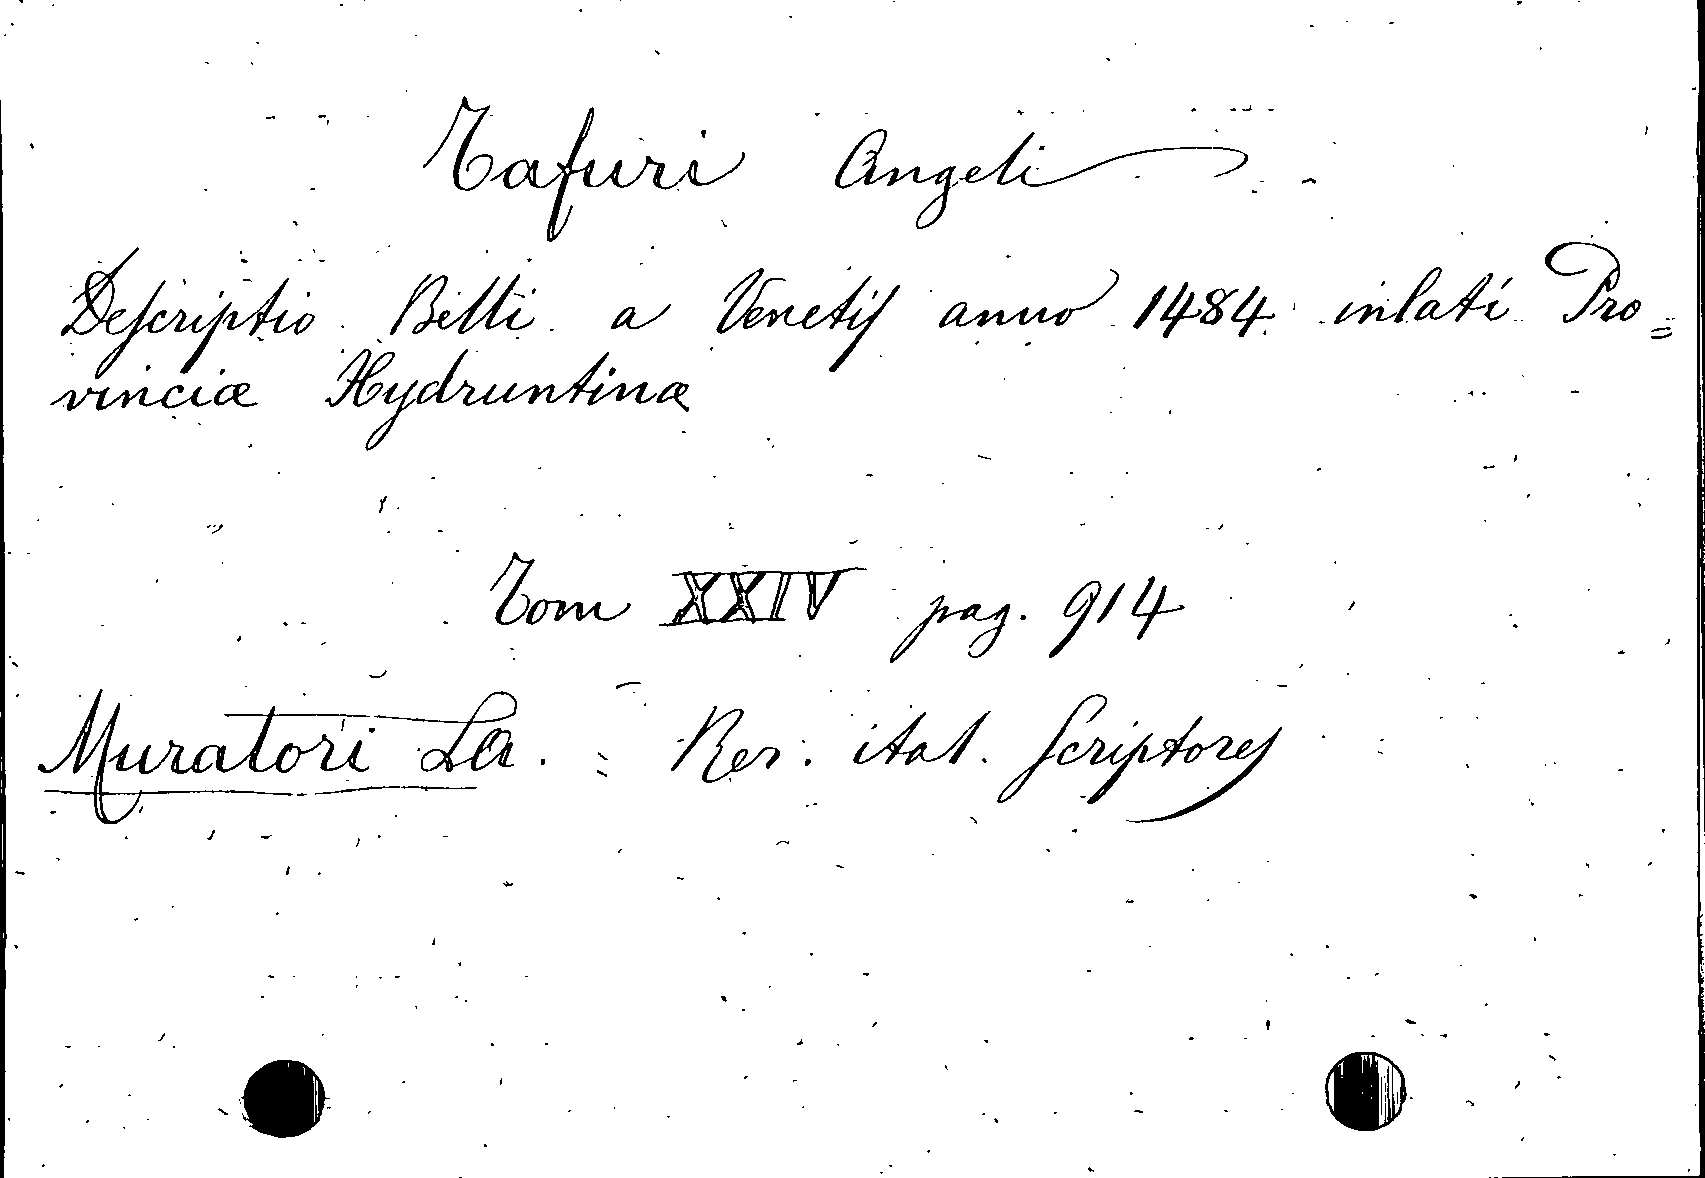 Tafuri Angeli
Descriptio Belli a Venetis anno 1484 inlati Pro=
vinciæ Hydruntinæ
Tom XXIV pag. 914
Muratori La. : Rer. ital. Scriptores